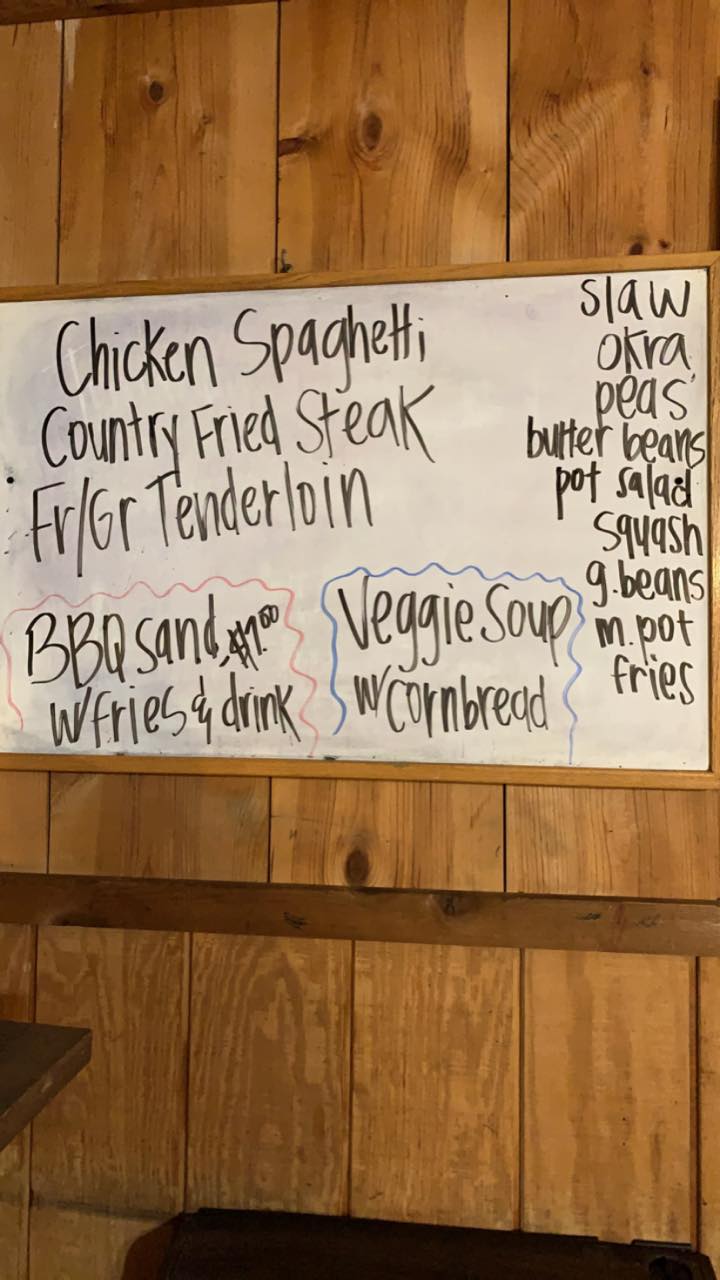 Chicken Spaghetti
Country Fried Steak
Fr/Gr Tenderloin
BBQ sand.
w/fries & drink
Veggie Soup
w/cornbread
slaw
okra
peas
butter beans
pot salad
squash
g.beans
m.pot
fries